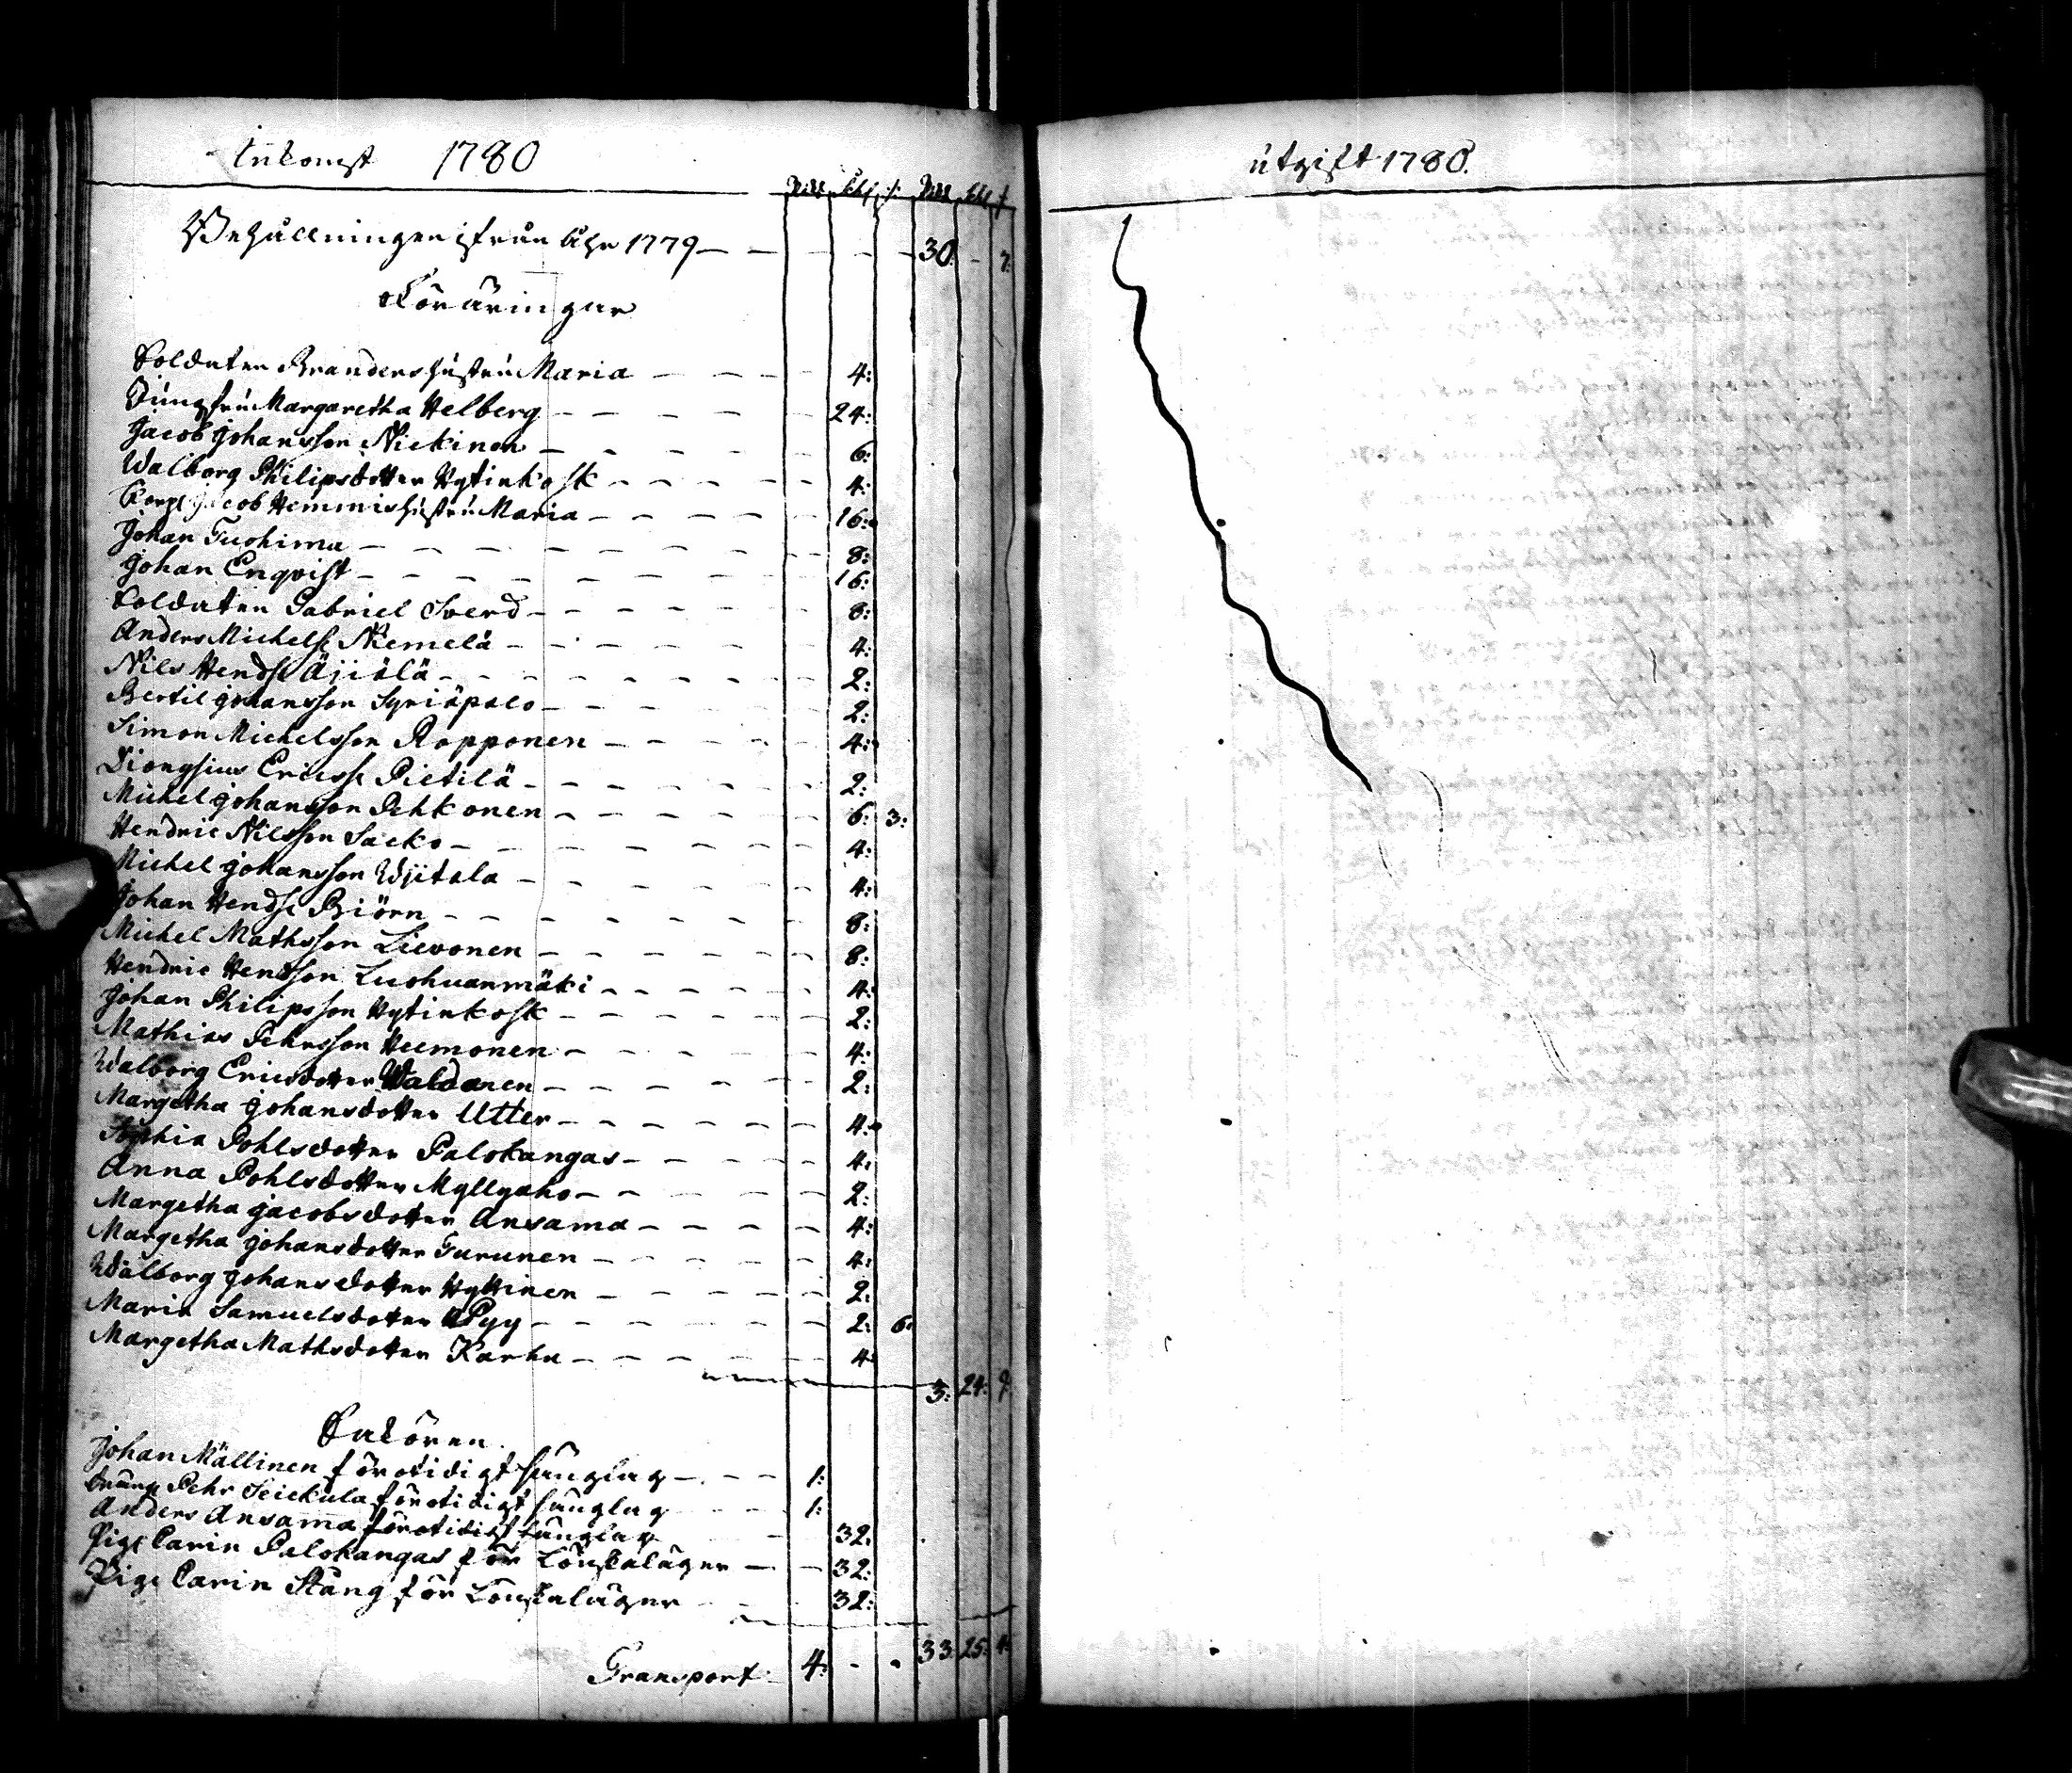 Inkomst 1780
Rdd Schl r: Rdd Schl r
Behållningen ifrån åhr 1779 — — — — — 30: — 7:
Föräringar
Soldaten Branders hustru Maria — — — 4:
Jungfru Margaretha Helberg — — — 24:
Jacob Johansson Nickinen — — — 6:
Walborg Philipsdotter Hytinkosk — — — 4:
Corpl Jacob Hemmis hustru Maria — — — 16:
Johan Tuohima — — — 8:
Johan Enqvist — — — 16:
Soldaten Gabriel Sverd — — — 8:
Anders Michelss Niemelä — — — 4:
Nils Hendss Äjiälä — — — 2:
Bertil Johansson Syriäpalo — — — 2:
Simon Michelsson Ropponen — — — 4:
Dionysius Ericss Pietilä — — — 2:
Michel Johansson Pehkonen — — — 6: 3:
Hendric Nilsson Sacko — — — 4:
Michel Johansson Wjitala — — — 4:
Johan Hendss Biörn — — — 8:
Michel Mathsson Lievonen — — — 8:
Hendric Hendsson Luohuanmäki — — — 4:
Johan Philipsson Hytinkosk — — — 2:
Mathias Pehrsson Heemonen — — — 4:
Walborg Ericsdotter Waldanen — — — 2:
Margetha Johansdotter Utter — — — 4:
Sophia Pohlsdotter Palokangas — — — 4:
Anna Pohlsdotter Myllyaho — — — 2:
Margetha Jacobsdotter Ansama — — — 4:
Margetha Johansdotter Turunen — — — 4:
Walborg Johansdotter Hyttinen — — — 2:
Maria Samuelsdotter Pyy — — — 2: 6:
Margetha Mathsdotter Karhu — — — 4:
3: 24: 9:
Saköören
Johan Mällinen för otidigt sänglag — — — 1:
Dräng Pehr Seickula för otidigt sänglag — — 1:
Anders Ansama för otidigt sänglag — 32:
Pig: Carin Palokangas för Lönskaläger — — 32:
Pig: Carin Stång för Lönskaläger — — 32:
Transport: 4: - - 33: 25: 4:
Utgift 1780.